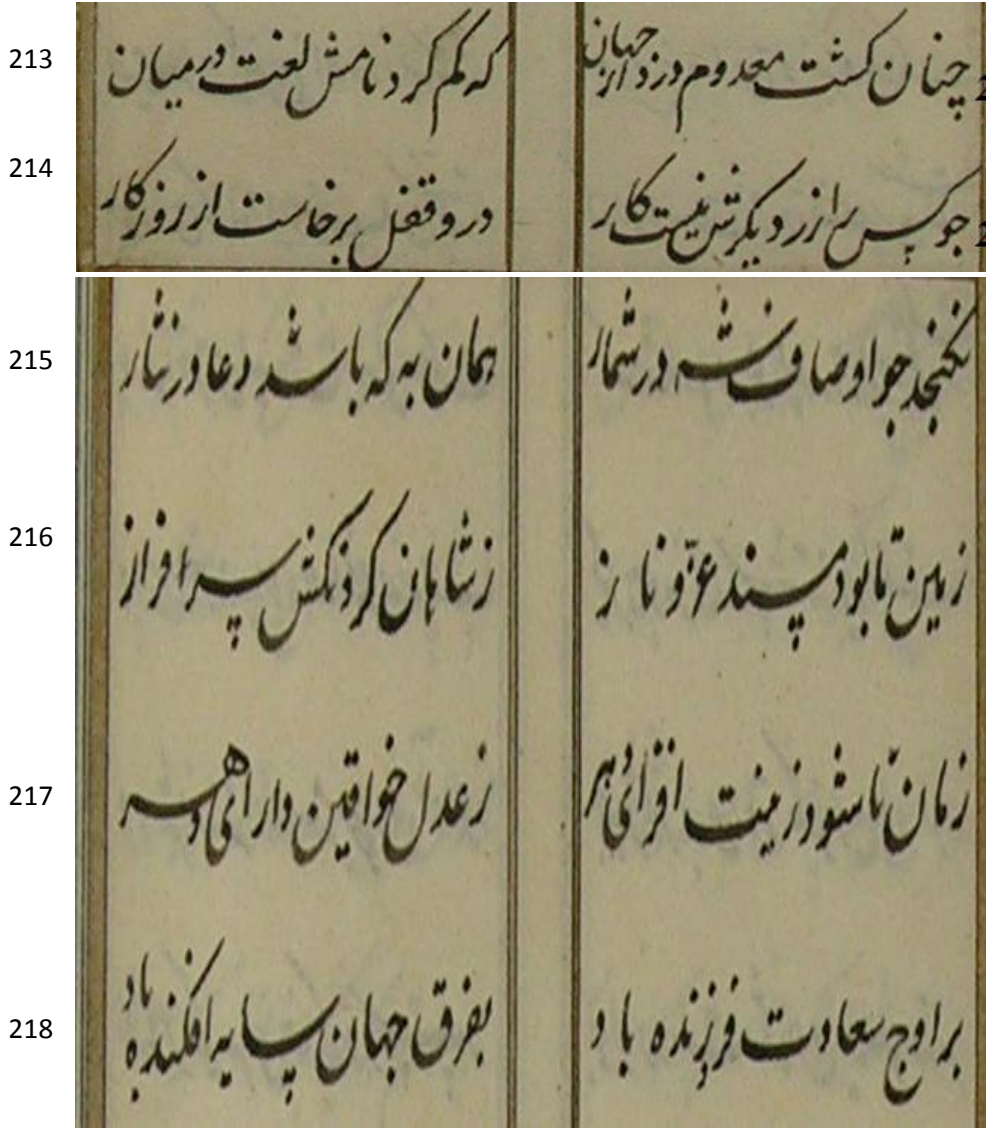 213 چنان کشت معدوم دزد از جهان که کم کرد نامش لغت در میان
214 جو کس را دیکرش نیست کار در و قفل برخاست از روزکار
215 نکنجد جو اوصاف شه در شمار همان به که باشد دعا در نثار
216 زمین تا بود مسند عزّ و ناز ز شاهان کردنکش سرافراز
217 زمان تا شود زینت افزائی ز عدل خواقین دارای دهر
218 بر اوج سعادت فرزنده باد بفرق جهان سایه افکنده باد